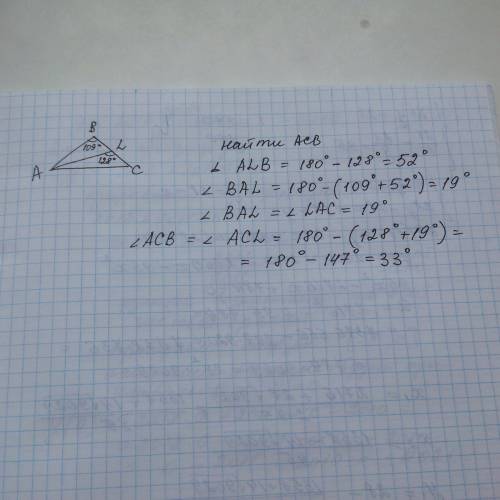 B
109°
L
128°
A
C
найти ACB
∠ ALB = 180° - 128° = 52°
∠ BAL = 180° - (109° + 52°) = 19°
∠ BAL = ∠ LAC = 19°
∠ACB = ∠ ACL = 180° - (128° + 19°) =
= 180° - 147° = 33°